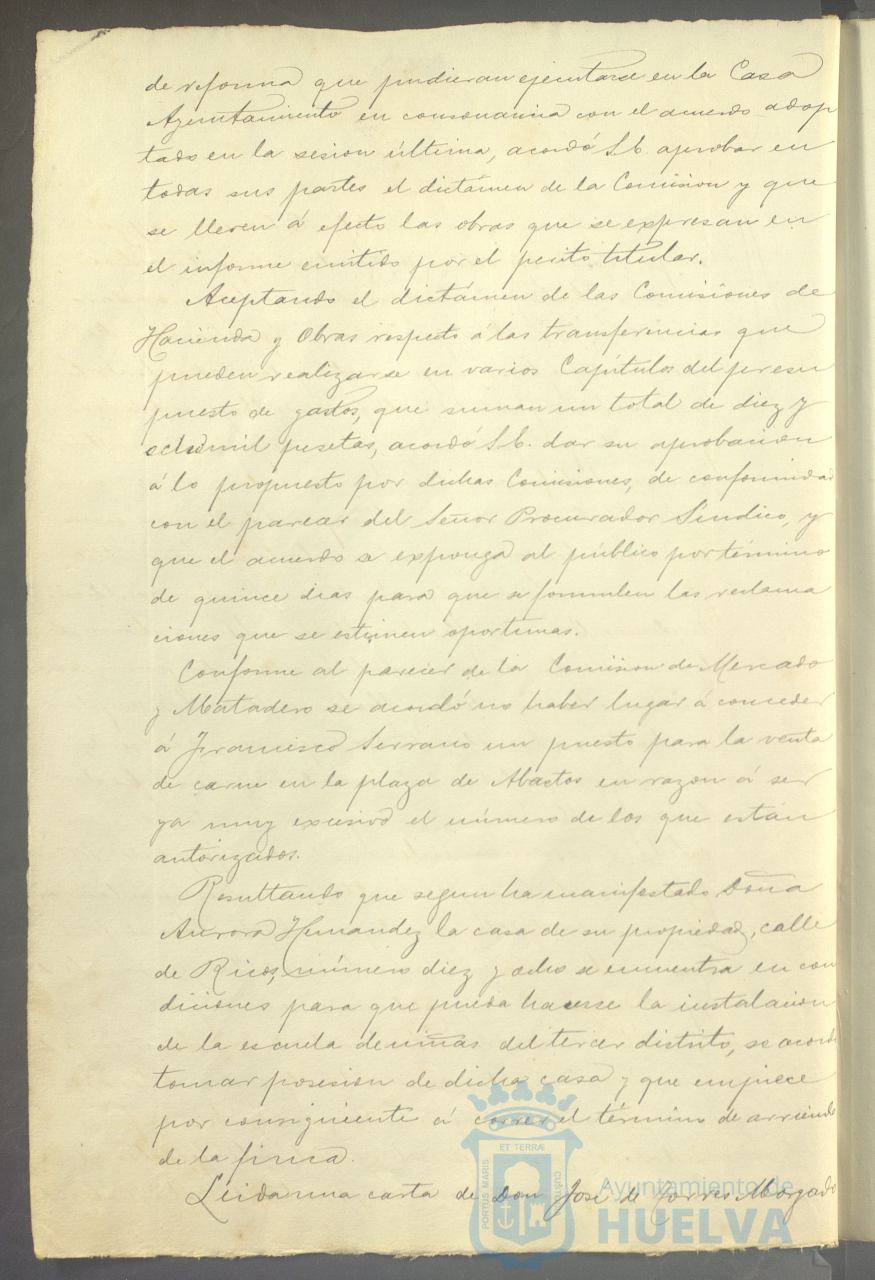 de reforma que pudieran ejecutarse en la Casa
Ayuntamiento en consonancia con el acuerdo adop
tado en la sesion última, acordó S.E. aprobar en
todas sus partes el dictámen de la Comision y que
se lleven á efecto las obras que se expresan en
el informe emitido por el perito titular.
Aceptando el dictámen de las Comisiones de
Hacienda y Obras respecto á las transferencias que
pueden realizarse en varios Capítulos del presu
puesto de gastos, que suman un total de diez y
ocho mil pesetas, acordó S.E. dar su aprobacion
á lo propuesto por dichas Comisiones, de conformidad
con el parecer del Señor Procurador Síndico, y
que el acuerdo se exponga al público por término
de quince dias para que se formulen las reclama
ciones que se estimen oportunas.
Conforme al parecer de la Comision de Mercado
y Matadero se acordó no haber lugar á conceder
á Francisco Serrano un puesto para la venta
de carne en la plaza de Abastos en razon á ser
ya muy excesivo el número de los que están
autorizados.
Resultando que segun ha manifestado Doña
Aurora Hernandez la casa de su propiedad, calle
de Ricos, número diez y ocho se encuentra en con
diciones para que pueda hacerse la instalacion
de la escuela de niñas del tercer distrito, se acordó
tomar posesion de dicha casa y que empiece
por consiguiente á correr el término de arriendo
de la finca.
Leida una carta de Don José de Torres Morgado
PORTUS MARIS
ET TERRÆ
CUSTODIA
Ayuntamiento de
HUELVA